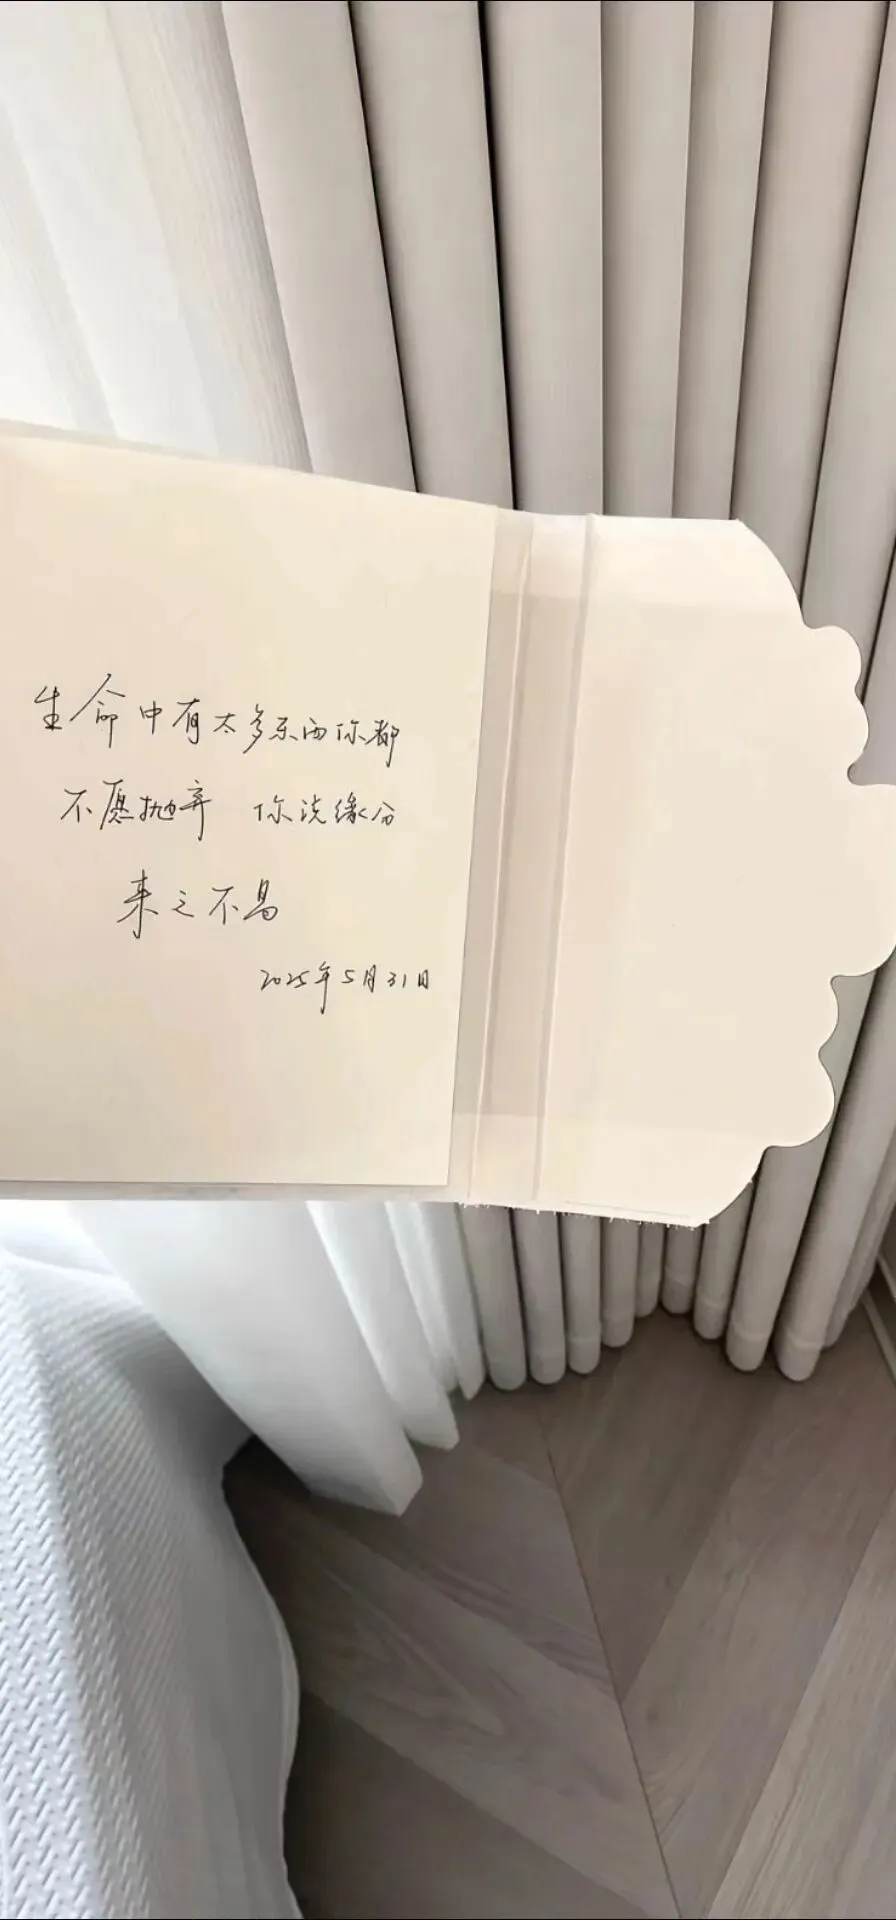 生命中有太多东西你都
不愿抛弃 你说缘分
来之不易
2025年5月31日